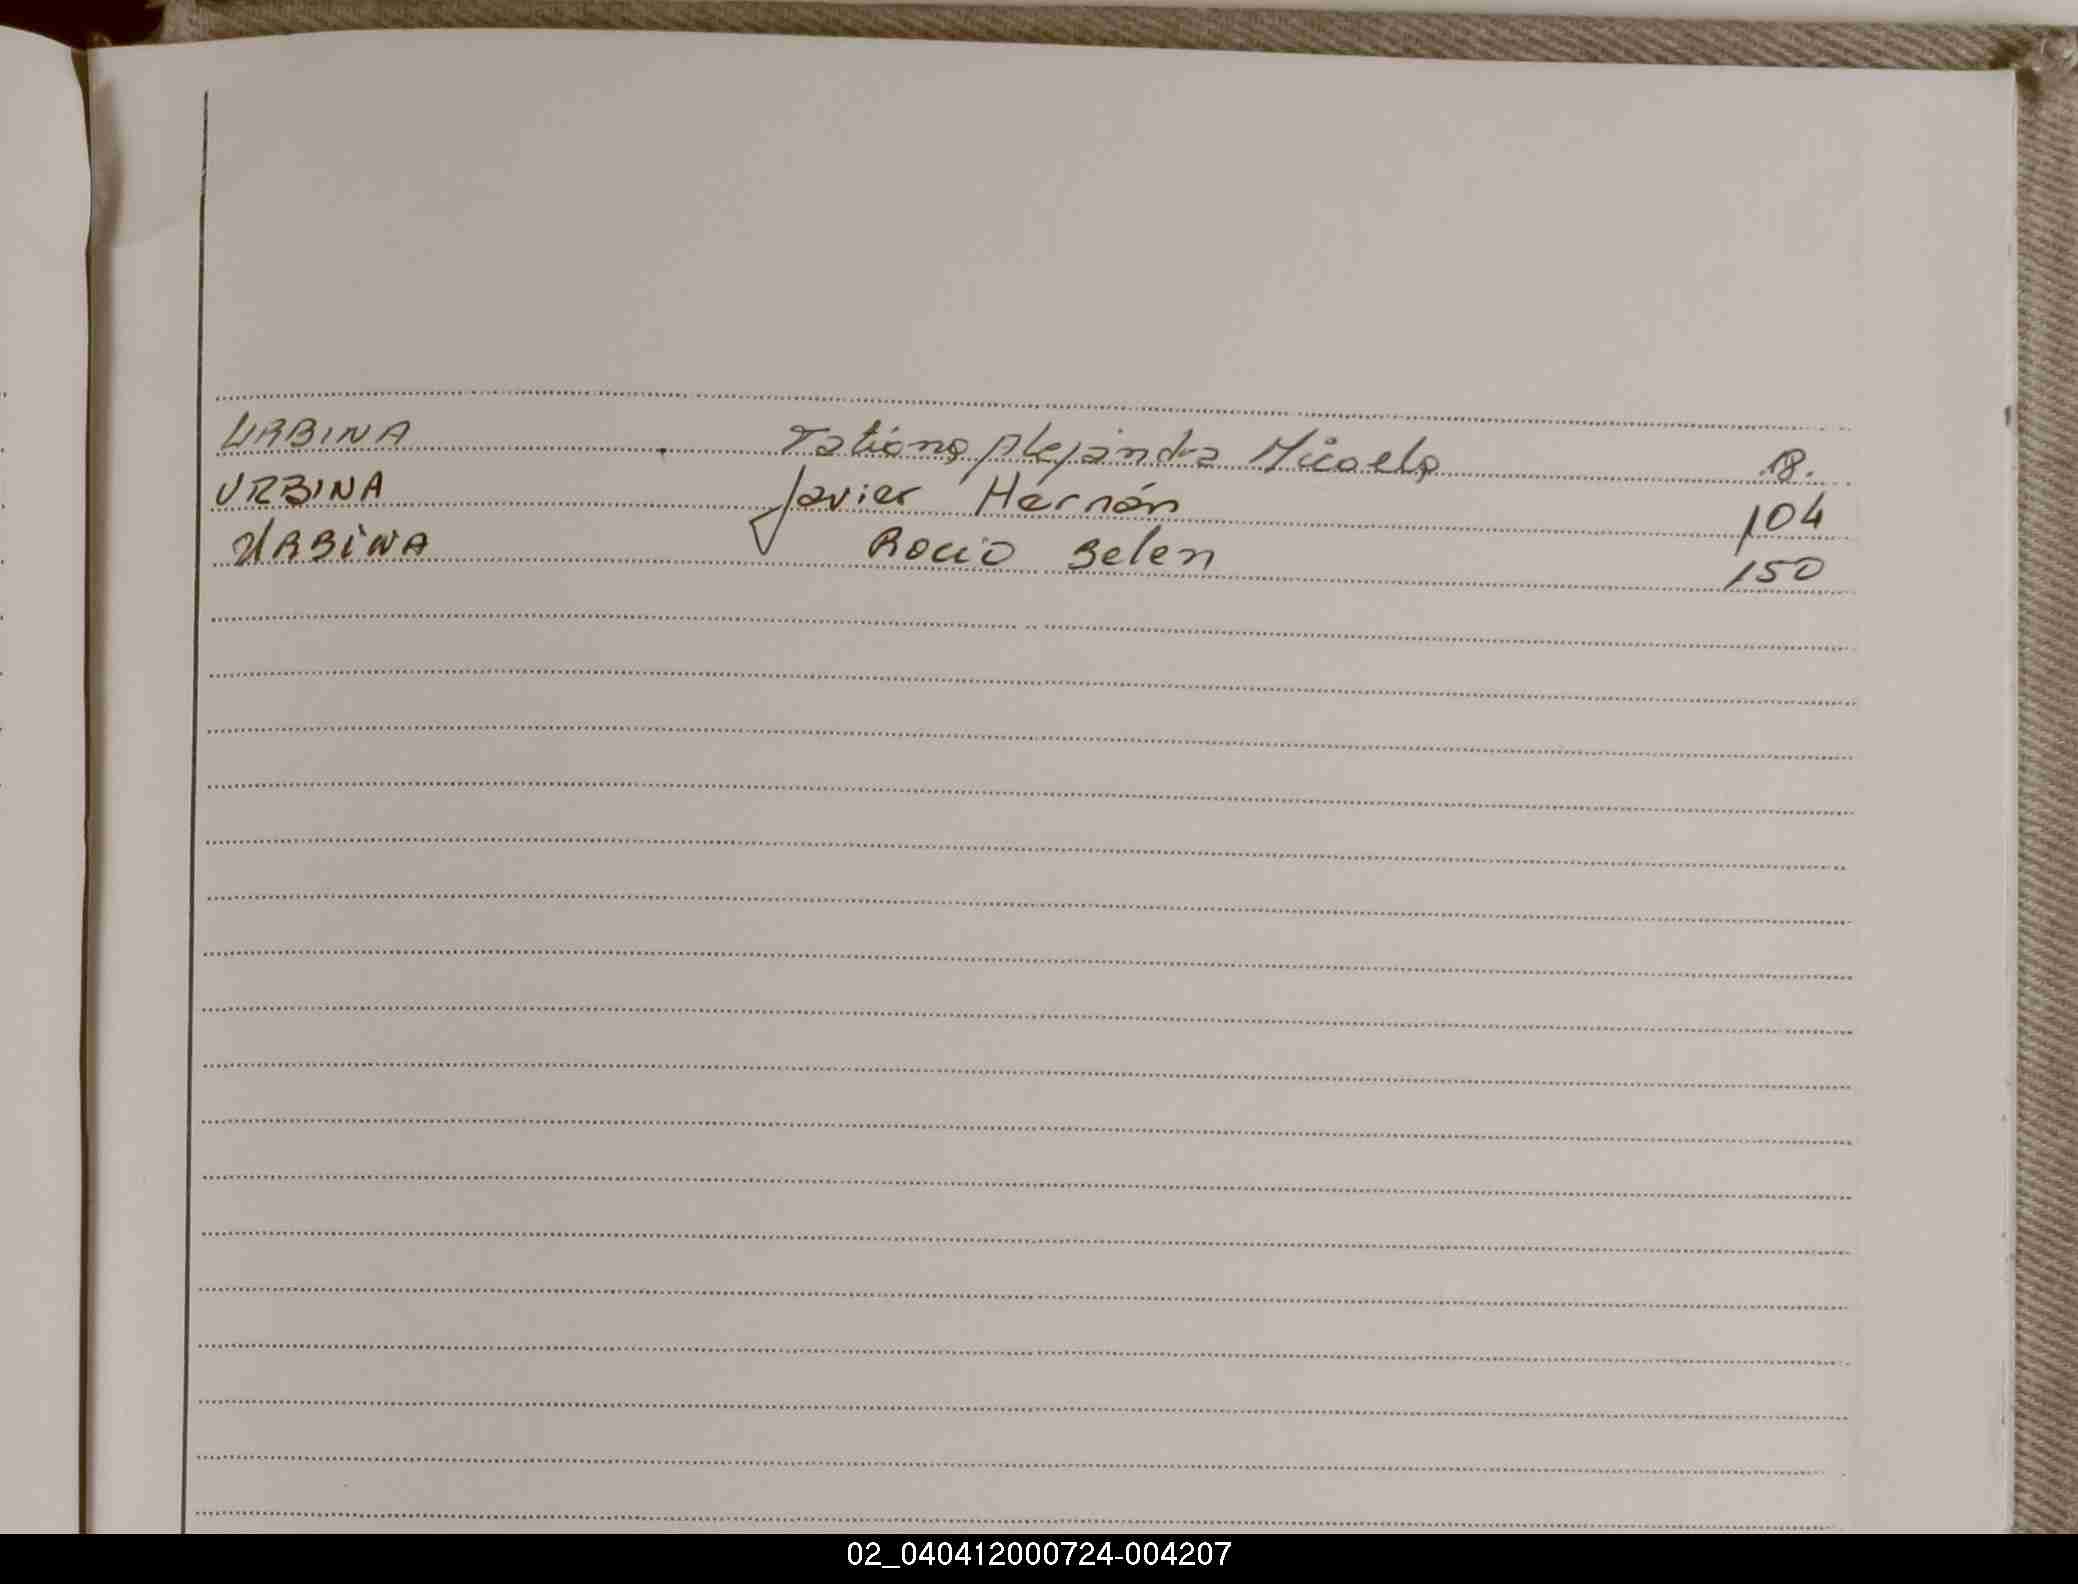 URBINA Tatiana Alejandra Micaela 18.
URBINA Javier Hernán 104
URBINA Rocio Belen 150
02_040412000724-004207